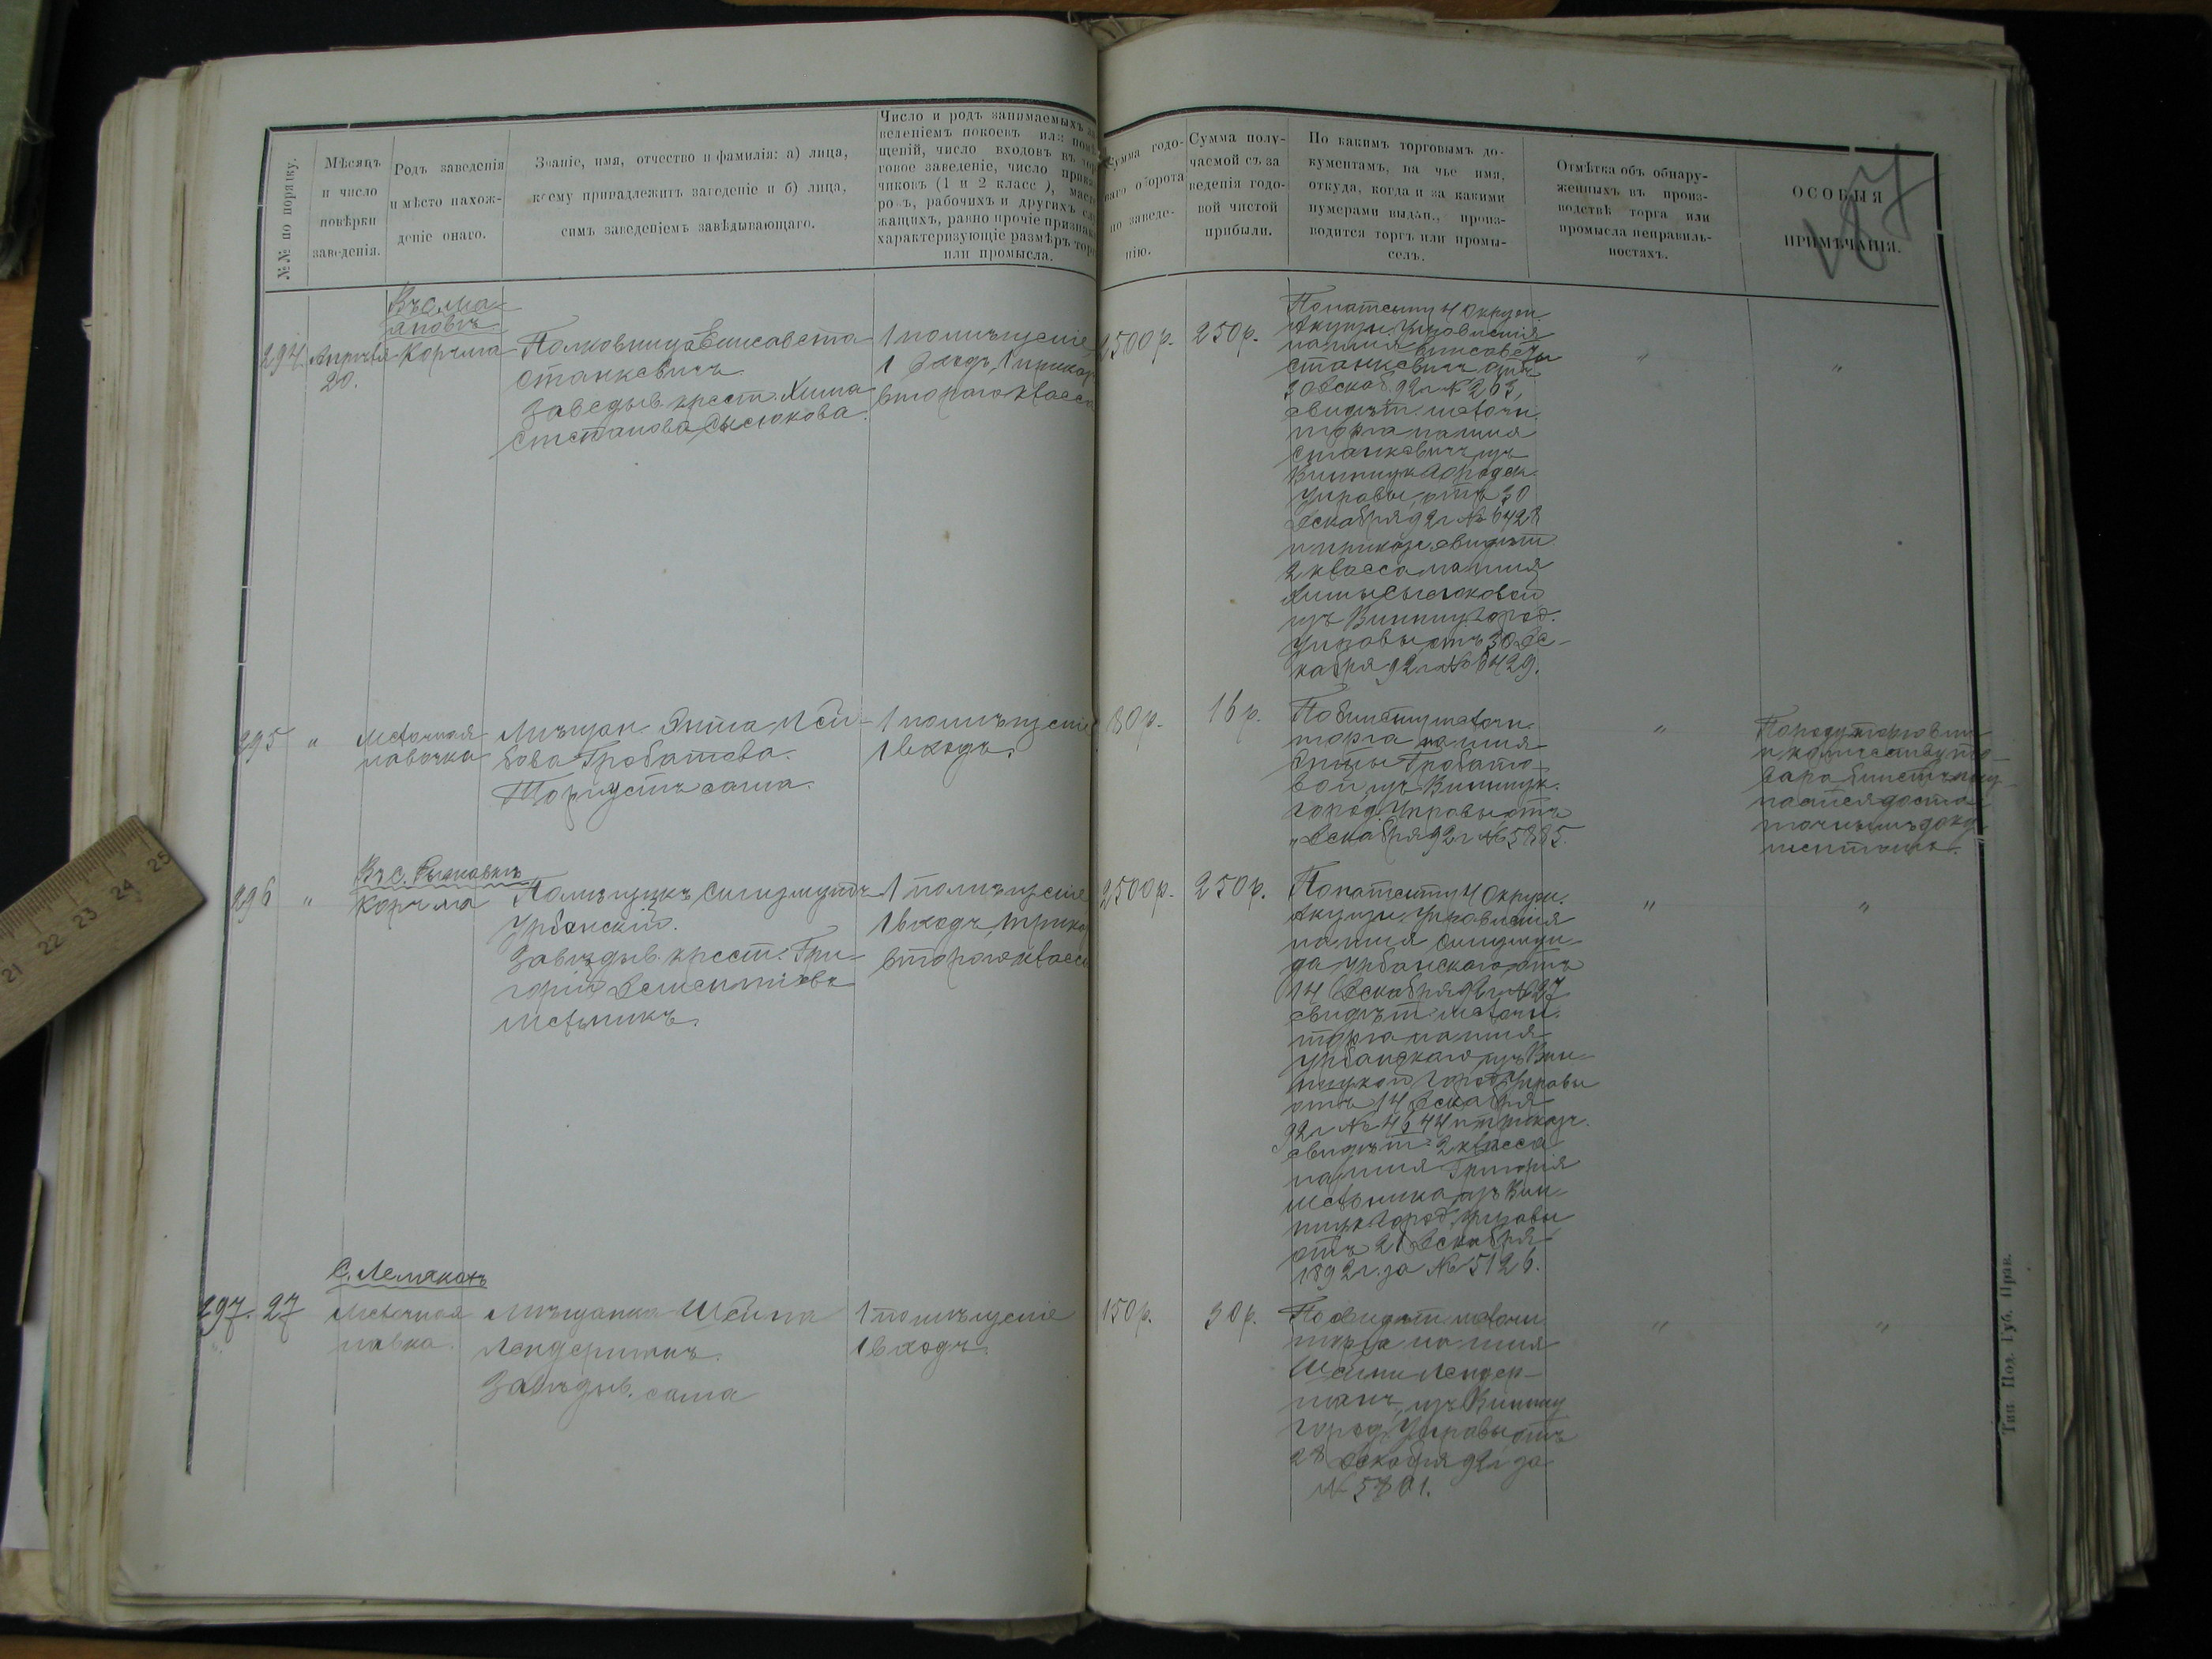 №№ по порядку.
Мѣсяцъ
и число
повѣрки
заведенія.
Родъ заведенія
и мѣсто нахож-
деніе онаго.
Званіе, имя, отчество и фамилія: а) лица,
коему принадлежитъ заведеніе и б) лица,
симъ заведеніемъ завѣдывающаго.
Число и родъ занимаемыхъ за
веденіемъ покоевъ или помѣ
щеній, число входовъ въ тор
говое заведеніе, число прика
чиковъ (1 и 2 класс ), масте
ровъ, рабочихъ и другихъ слу
жащихъ, равно прочіе признаки
характеризующіе размѣръ торга
или промысла.
Сумма годо-
ваго оборота
по заведе-
нію.
Сумма полу-
чаемой съ за
веденія годо-
вой чистой
прибыли.
По какимъ торговымъ до-
кументамъ, на чье имя,
откуда, когда и за какими
нумерами выдан., произ-
водится торгъ или промы-
селъ.
Отмѣтка объ обнару-
женныхъ въ произ-
водствѣ торга или
промысла неправиль-
ностяхъ.
ОСОБЫЯ
ПРИМѢЧАНІЯ.
294. Апрѣля
20.
Корчма
Полковница Елисавета
Станкевичъ.
Заведыв. крест. Хима
Степанова Сысюкова.
1 помѣщеніе,
1 входъ, 1 прикащ
второго класса
2500 р.
250 р.
По патенту 4 Окружн.
Акцизн. Управленія
на имя Елисаветы
Станкевичъ отъ
30 декаб. 92 г. № 263,
свидѣт. мелочн.
торга на имя
Станкевичъ изъ
Винницк. Городск.
Управы, отъ 30
декабря 92 г. № 6428
и прикащ. свидѣт.
2 класса на имя
Химы Сысюковой
изъ Винниц. Город.
Управы отъ 30 де-
кабря 92 г. № 6429.
"
"
295
"
Мелочная
лавочка
Мѣщан. Энта Лей-
бова Гробатова.
Торгуетъ сама.
1 помѣщеніе
1 входъ.
80 р.
16 р.
По билету мелочн.
торга на имя
Энты Гробато-
вой изъ Винницк.
город. Управы отъ
" декабря 92 г. № 5885.
"
По роду торговли
и количеству то-
вара билетъ яв
ляется доста-
точнымъ доку-
ментомъ.
296
"
Въ с.
Корчма
Помѣщикъ Сигизмундъ
Урбанскій.
Завѣдыв. крест. Гри-
горій Дементіевъ
Мельникъ.
1 помѣщеніе
1 входъ, 1 прика
второго класса
2500 р.
250 р.
По патенту 4 Окружн.
Акцизн. Управленія
на имя Сигизмун-
да Урбанскаго отъ
14 декабря 92 г. № 27
свидѣт. мелочн.
торга на имя
Урбанскаго, изъ Вин-
ницкой Город. Управы
отъ 14 декабря
92 г. № 4644 и прикащ.
свидѣт. 2 класса
на имя Григорія
Мельника, изъ Вин-
ницк. Город. Управы
отъ 21 декабря
1892 г. за № 5126.
"
"
297.
27
Мелочная
лавка.
Мѣщанка Шейна
Лендерманъ.
Завѣдыв. сама
1 помѣщеніе
1 входъ.
150 р.
30 р.
По свидѣт. мелочн.
торга на имя
Шейны Лендер-
манъ, изъ Винниц
Город. Управы отъ
28 декабря 92 г. за
№ 5801.
"
"
Тип. Под. Губ. Прав.